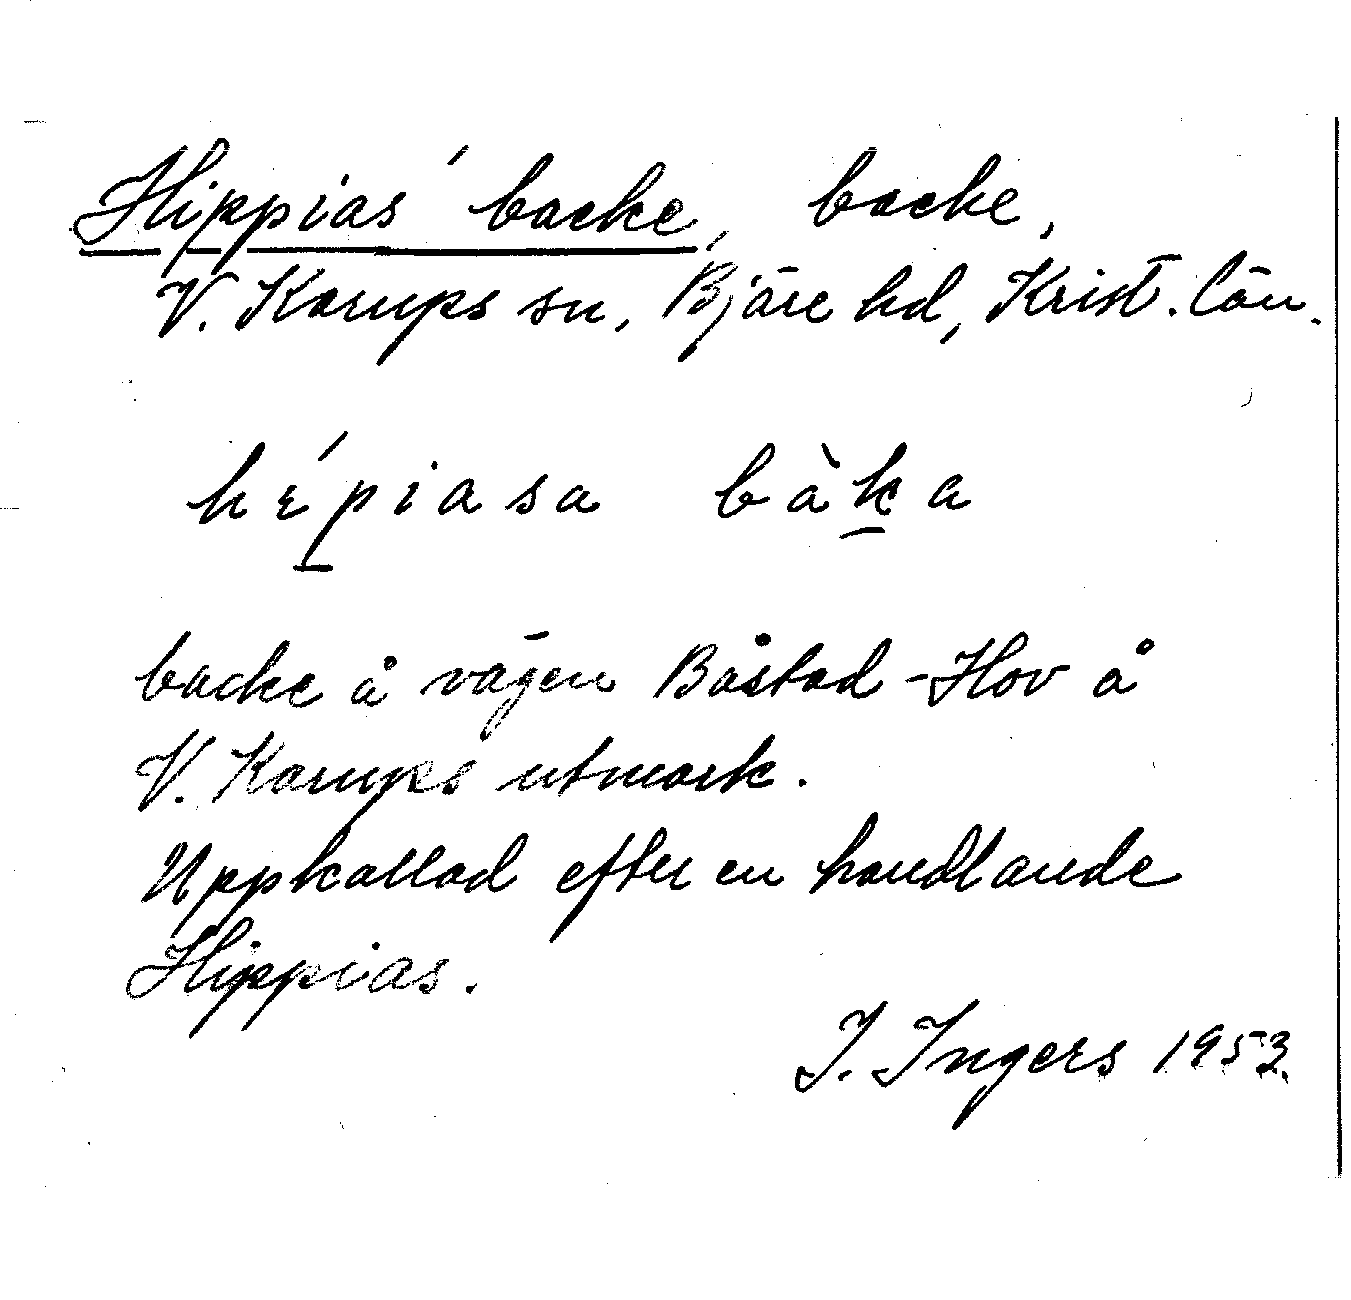 Hippias' backe, backe,
V. Karups sn, Bjäre hd, Krist. län.
hépiasa bàka
backe å vägen Båstad - Hov å
V. Karups utmark.
Uppkallad efter en handlande
Hippias.
I. Ingers 1953.